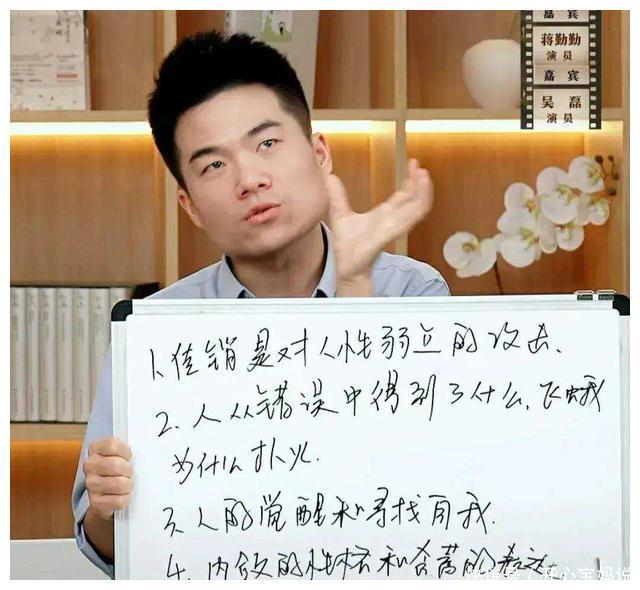 嘉宾
蒋勤勤
演员
嘉宾
吴磊
演员
1.传销是对人性弱点的攻击.
2.人从错误中得到了什么,飞蛾
为什么扑火.
3.人的觉醒和寻找自我.
4.内敛的性格和含蓄的表达